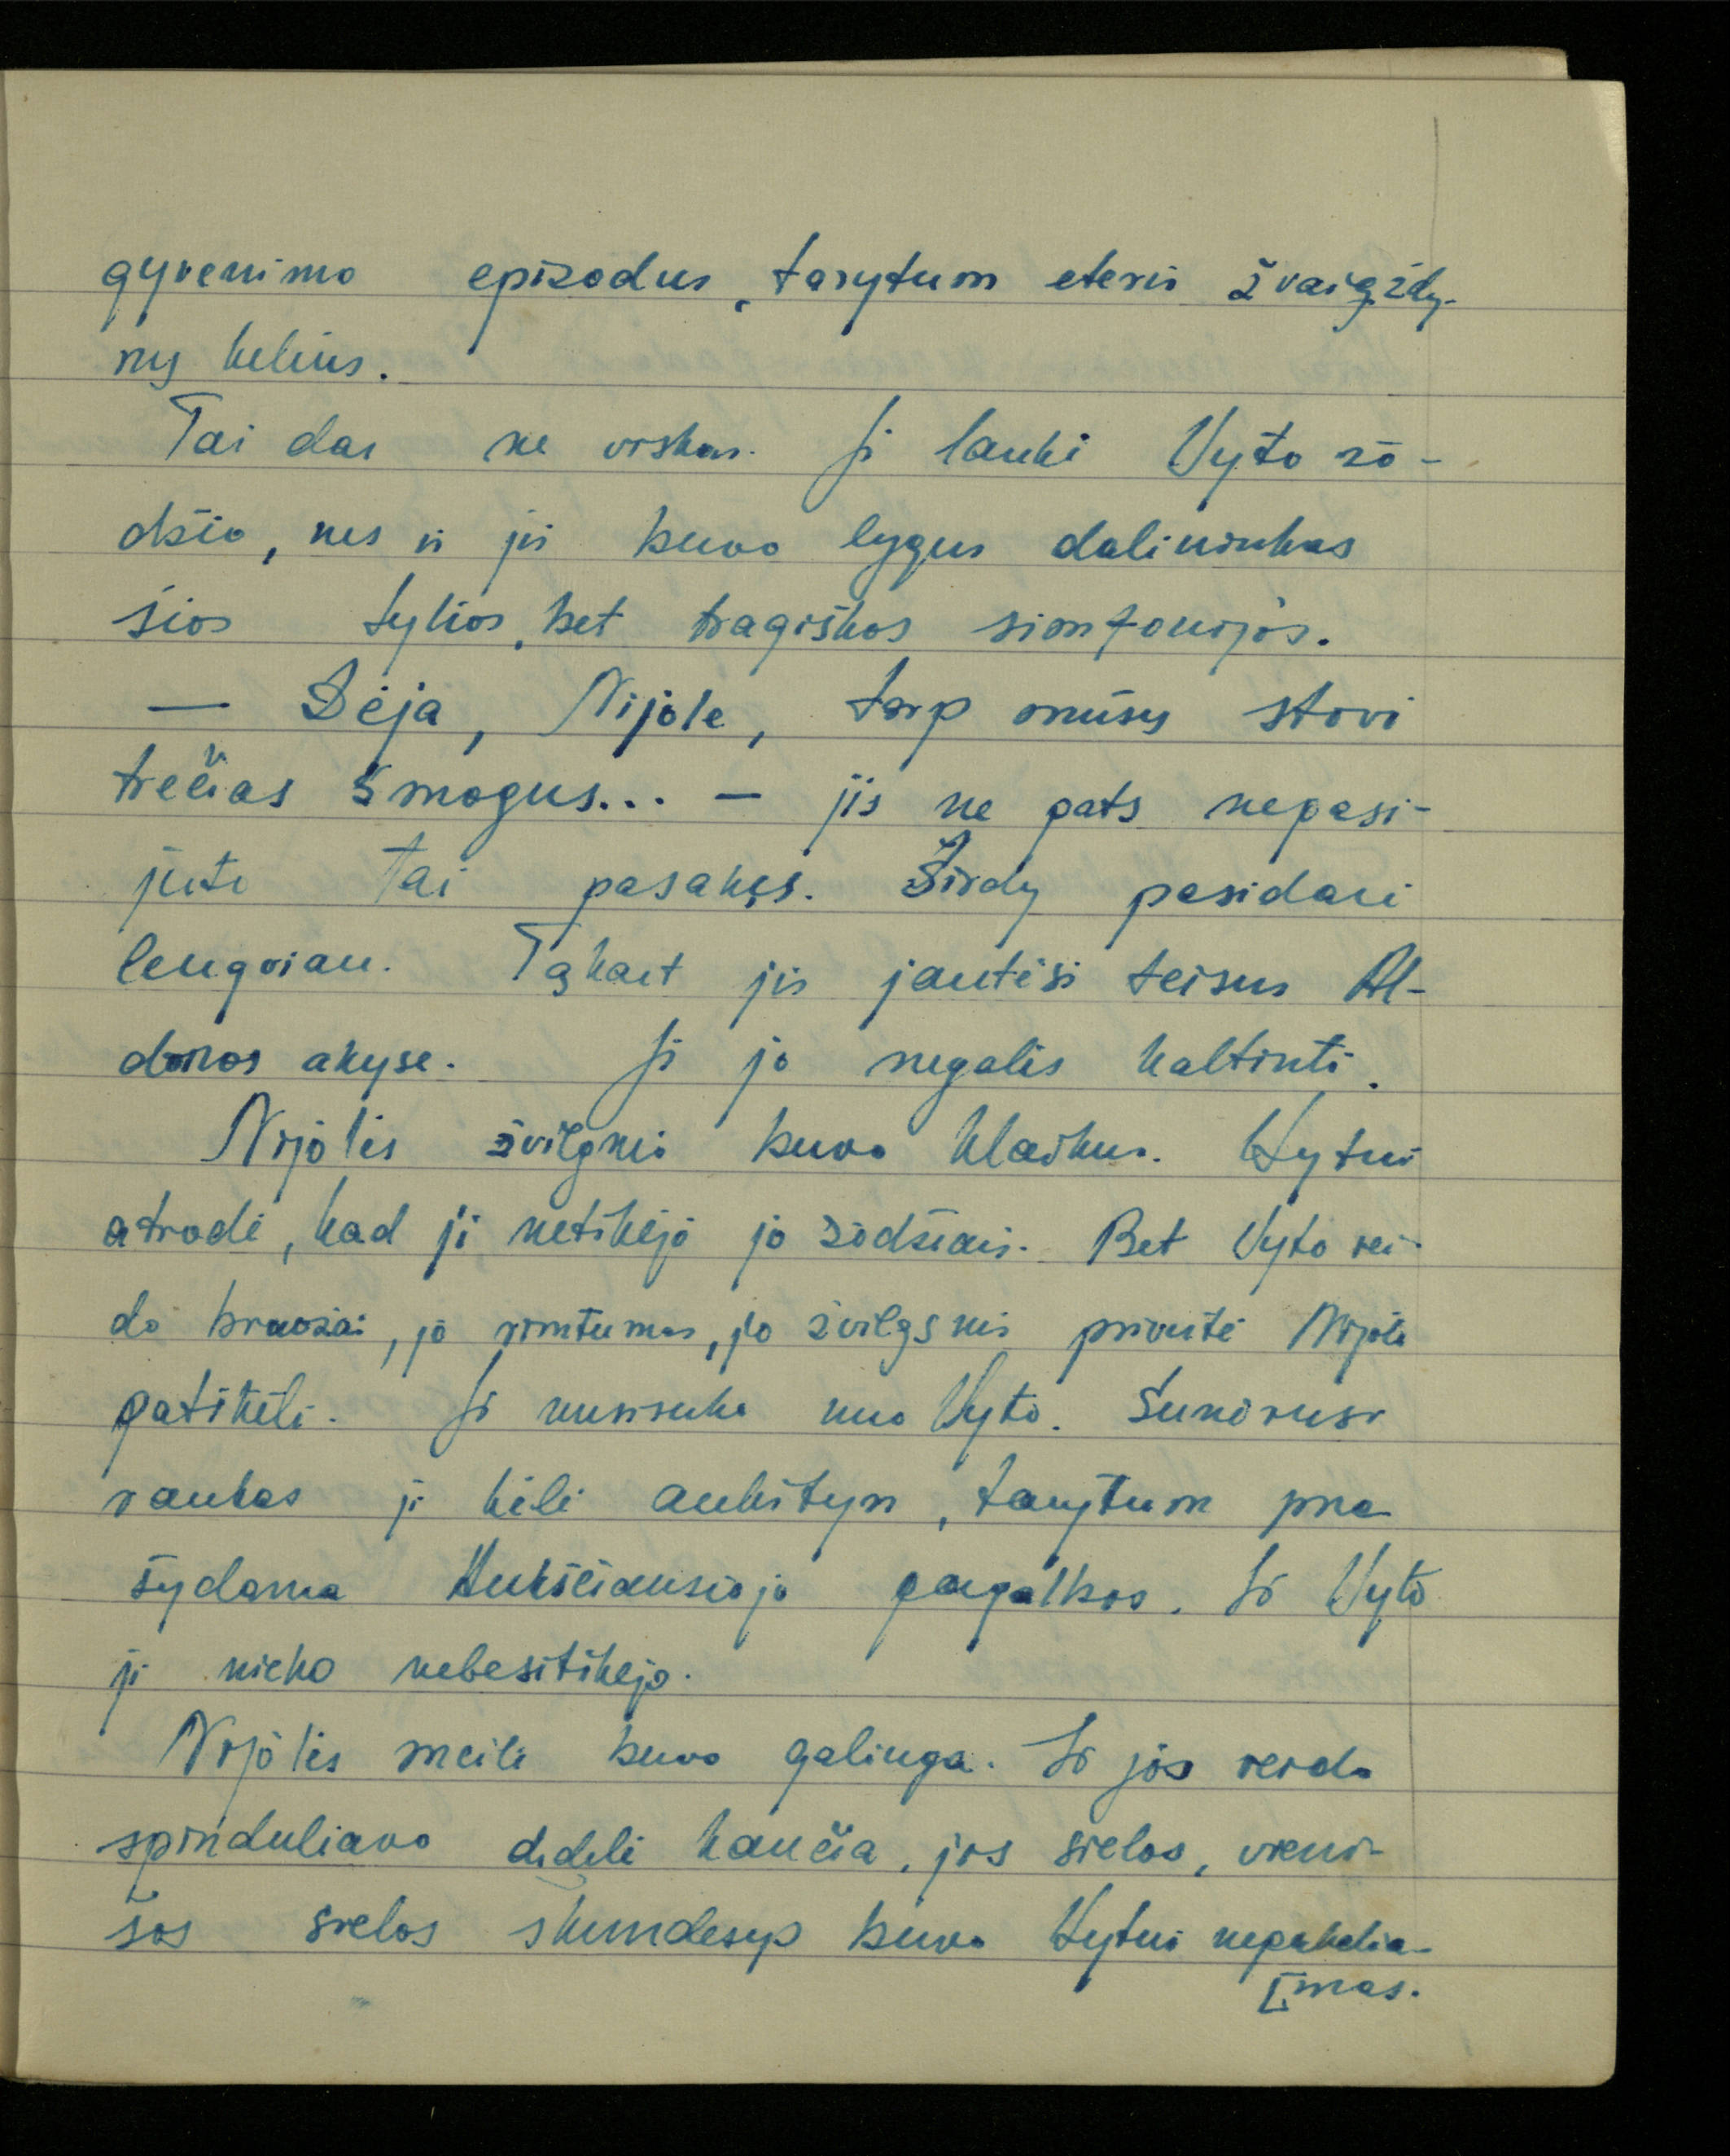 gyvenimo epizodus, tarytum eteris žvaigždy-
nų kelius.
Tai dar ne viskas. Ji laukė Vyto žo-
džio, nes ir jis buvo lygus dalininkas
šios tylios, bet tragiškos simfonijos.
— Dėja, Nijole, tarp mūsų stovi
trečias žmogus... — jis ne pats nepasi-
juto tai pasakęs. Širdy pasidarė
lengviau. Tąkart jis jautėsi teisus Al-
donos akyse. Ji jo negalės kaltinti.
Nijolės žvilgsnis buvo klaikus. Vytui
atrodė, kad ji netikėjo jo žodžiais. Bet Vyto vei-
do bruožai, jo rimtumas, jo žvilgsnis privertė Nijolę
patikėti. Ji nusisuko nuo Vyto. Sunėrusi
rankas ji kėlė aukštyn, tarytum pra-
šydama Aukščiausiojo pagalbos. Iš Vyto
ji nieko nebesitikėjo.
Nijolės meilė buvo galinga. Iš jos veido
spinduliavo didelė kančia, jos sielos, vieni-
šos sielos skundesys buvo Vytui nepakelia-
[mas.